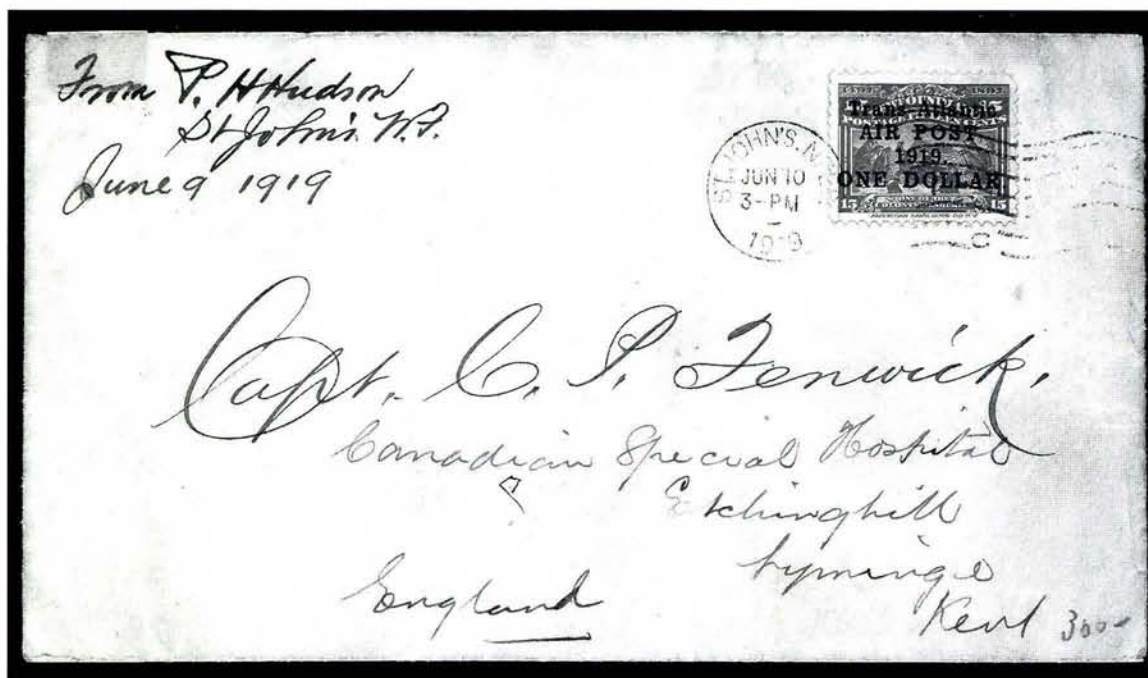 From P. H Hudson
St John's. N.F.
June 9 1919
ST. JOHN'S. N
JUN 10
3-PM
1919
Trans-Atlantic
AIR POST,
1919.
ONE DOLLAR
15 15
Capt. C. P. Fenwick,
Canadian Special Hospital
Etchinghill
Lyminge
Kent
England
300-